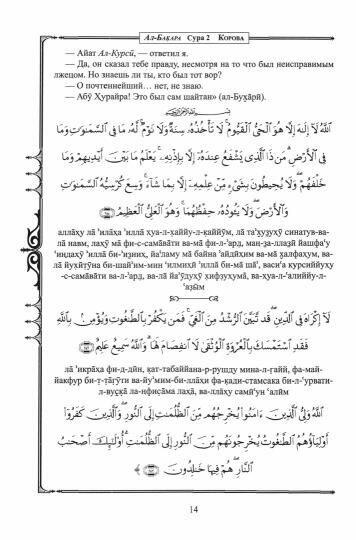 Ал-Бақара Сура 2 Корова
— Айат Ал-Курсӣ, — ответил я.
— Да, он сказал тебе правду, несмотря на то что был неисправимым
лжецом. Но знаешь ли ты, кто был тот вор?
— О почтеннейший... нет, не знаю.
— Абӯ Ҳурайра! Это был сам шайтан» (ал-Буҳāрӣ).
ٱللَّهُ لَآ إِلَٰهَ إِلَّا هُوَ ٱلْحَىُّ ٱلْقَيُّومُ ۚ لَا تَأْخُذُهُۥ سِنَةٌ وَلَا نَوْمٌ ۚ لَّهُۥ مَا فِى ٱلسَّمَٰوَٰتِ وَمَا
فِى ٱلْأَرْضِ ۗ مَن ذَا ٱلَّذِى يَشْفَعُ عِندَهُۥٓ إِلَّا بِإِذْنِهِۦ ۚ يَعْلَمُ مَا بَيْنَ أَيْدِيهِمْ وَمَا
خَلْفَهُمْ ۖ وَلَا يُحِيطُونَ بِشَىْءٍ مِّنْ عِلْمِهِۦٓ إِلَّا بِمَا شَآءَ ۚ وَسِعَ كُرْسِيُّهُ ٱلسَّمَٰوَٰتِ
وَٱلْأَرْضَ ۖ وَلَا يَـُٔودُهُۥ حِفْظُهُمَا ۚ وَهُوَ ٱلْعَلِىُّ ٱلْعَظِيمُ
аллāҳу лā 'илāҳа 'иллā ҳуа-л-ҳаййу-л-қаййӯм, лā та'ҳуҙуҳӯ синатув-ва-
лā навм, лаҳӯ мā фи-с-самāвāти ва-мā фи-л-'ард, ман-ҙа-ллаҙӣ йашфа'у
'индаҳӯ 'иллā би-'иҙниҳ, йа'ламу мā байна 'айдӣҳим ва-мā ҳалфаҳум, ва-
лā йуҳӣтӯна би-шай'им-мин 'илмиҳӣ 'иллā би-мā шā', васи'а курсиййуҳу
-с-самāвāти ва-л-'ард, ва-лā йа'ӯдуҳӯ ҳифҙуҳумā, ва-ҳуа-л-'алиййу-л-
'аҙӣм
لَآ إِكْرَاهَ فِى ٱلدِّينِ ۖ قَد تَّبَيَّنَ ٱلرُّشْدُ مِنَ ٱلْغَىِّ ۚ فَمَن يَكْفُرْ بِٱلطَّٰغُوتِ وَيُؤْمِنۢ بِٱللَّهِ
فَقَدِ ٱسْتَمْسَكَ بِٱلْعُرْوَةِ ٱلْوُثْقَىٰ لَا ٱنفِصَامَ لَهَا ۗ وَٱللَّهُ سَمِيعٌ عَلِيمٌ
лā 'икрāҳа фи-д-дӣн, қат-табаййана-р-рушду мина-л-ғайй, фа-май-
йакфур би-т-тāғӯти ва-йу'мим-би-ллāҳи фа-қади-стамсака би-л-'урвати-
л-вуҫқā ла-нфисāма лаҳā, ва-ллāҳу самӣ'ун 'алӣм
ٱللَّهُ وَلِىُّ ٱلَّذِينَ ءَامَنُوا۟ يُخْرِجُهُم مِّنَ ٱلظُّلُمَٰتِ إِلَى ٱلنُّورِ ۖ وَٱلَّذِينَ كَفَرُوٓا۟
أَوْلِيَآؤُهُمُ ٱلطَّٰغُوتُ يُخْرِجُونَهُم مِّنَ ٱلنُّورِ إِلَى ٱلظُّلُمَٰتِ ۗ أُو۟لَٰٓئِكَ أَصْحَٰبُ
ٱلنَّارِ ۖ هُمْ فِيهَا خَٰلِدُونَ
14